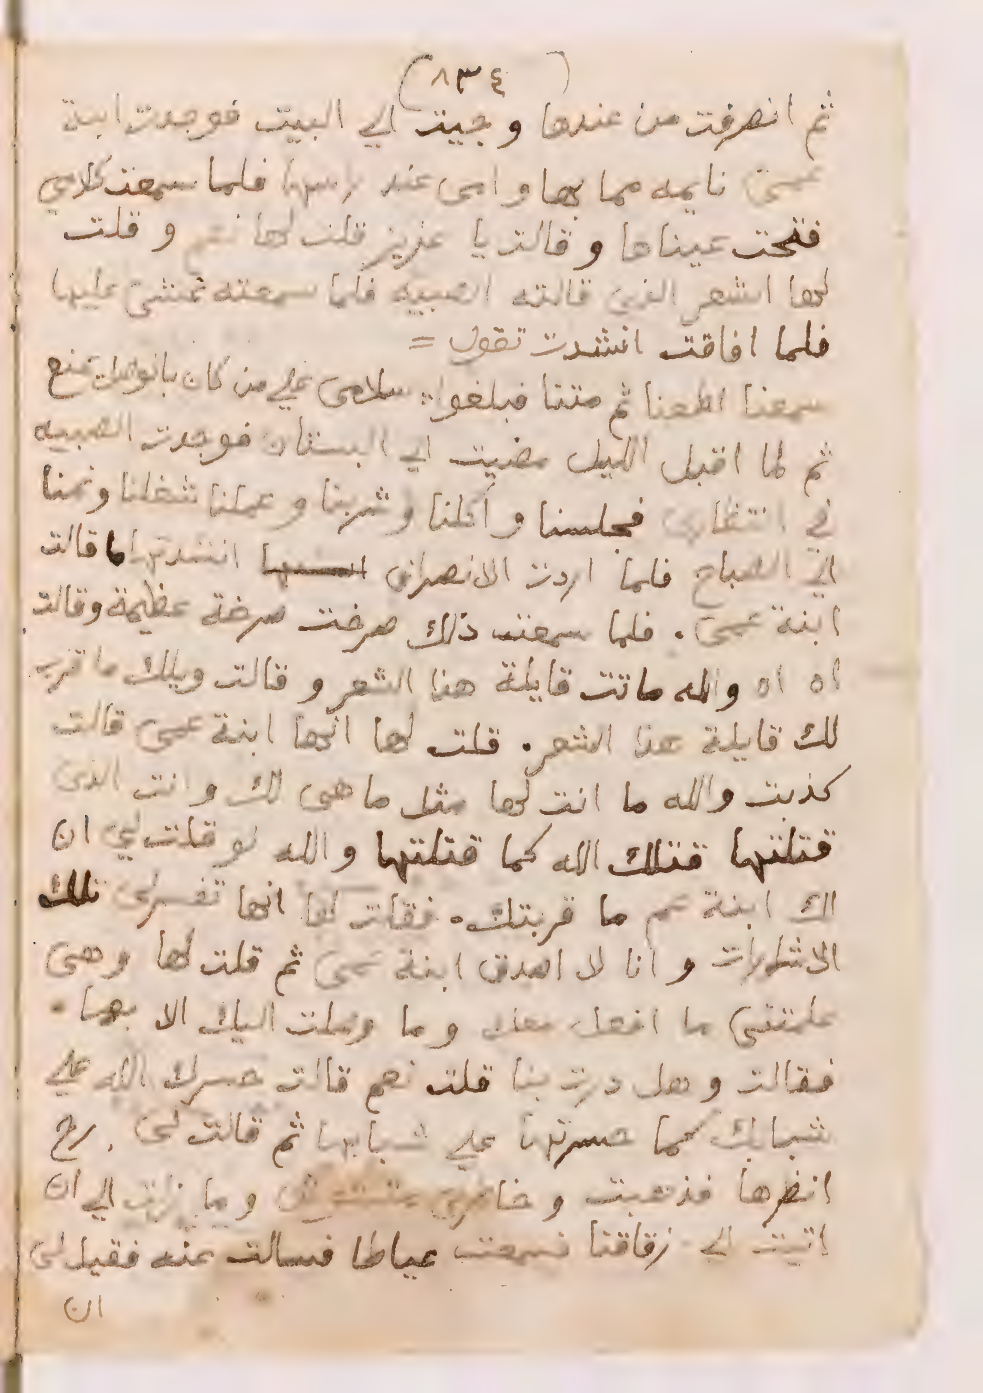 (٨٣٤)
ثم انصرفت من عندها و جيت الي البيت فوجدت ابنة
عمى نايمه مما بها و امى عند راسها فلما سمعت كلامي
فتحت عيناها و قالت يا عزيز قلت لها نعم و قلت
لها الشعر الذى قالته الصبيه فلما سمعته غشى عليها
فلما افاقت انشدت تقول =
سمعنا اطعنا ثم متنا فبلغوا : سلامى علي من كان بالوصل يمنع
ثم لما اقبل الليل مضيت الي البستان فوجدت الصبيه
في انتظارى فجلسنا و اكلنا و شربنا و عملنا شغلنا و نمنا
الي الصباح فلما اردت الانصراف انشدتها ما قالت
ابنة عمى . فلما سمعت ذلك صرخت صرخة عظيمة و قالت
اه اه والله ماتت قايلة هذا الشعر و قالت ويلك ما تقرب
لك قايلة هذا الشعر . قلت لها انها ابنة عمى قالت
كذبت والله ما انت لها مثل ما هى لك و انت الذى
قتلتها قتلك الله كما قتلتها والله لو قلت لي ان
لك ابنة عم ما قربتك . فقلت لها انها تفسر لى تلك
الاشارات و انا لا اصدق ابنة عمى ثم قلت لها و هى
علمتنى ما افعل معك و ما وصلت اليك الا بها .
فقالت و هل درت بنا قلت نعم قالت حسرك الله علي
شبابك كما حسرتها علي شبابها ثم قالت لى رح
انظرها فذهبت و خاطرى و ما زلت الي ان
اتيت الي زقاقنا فسمعت عياطا فسالت عنه فقيل لى
ان